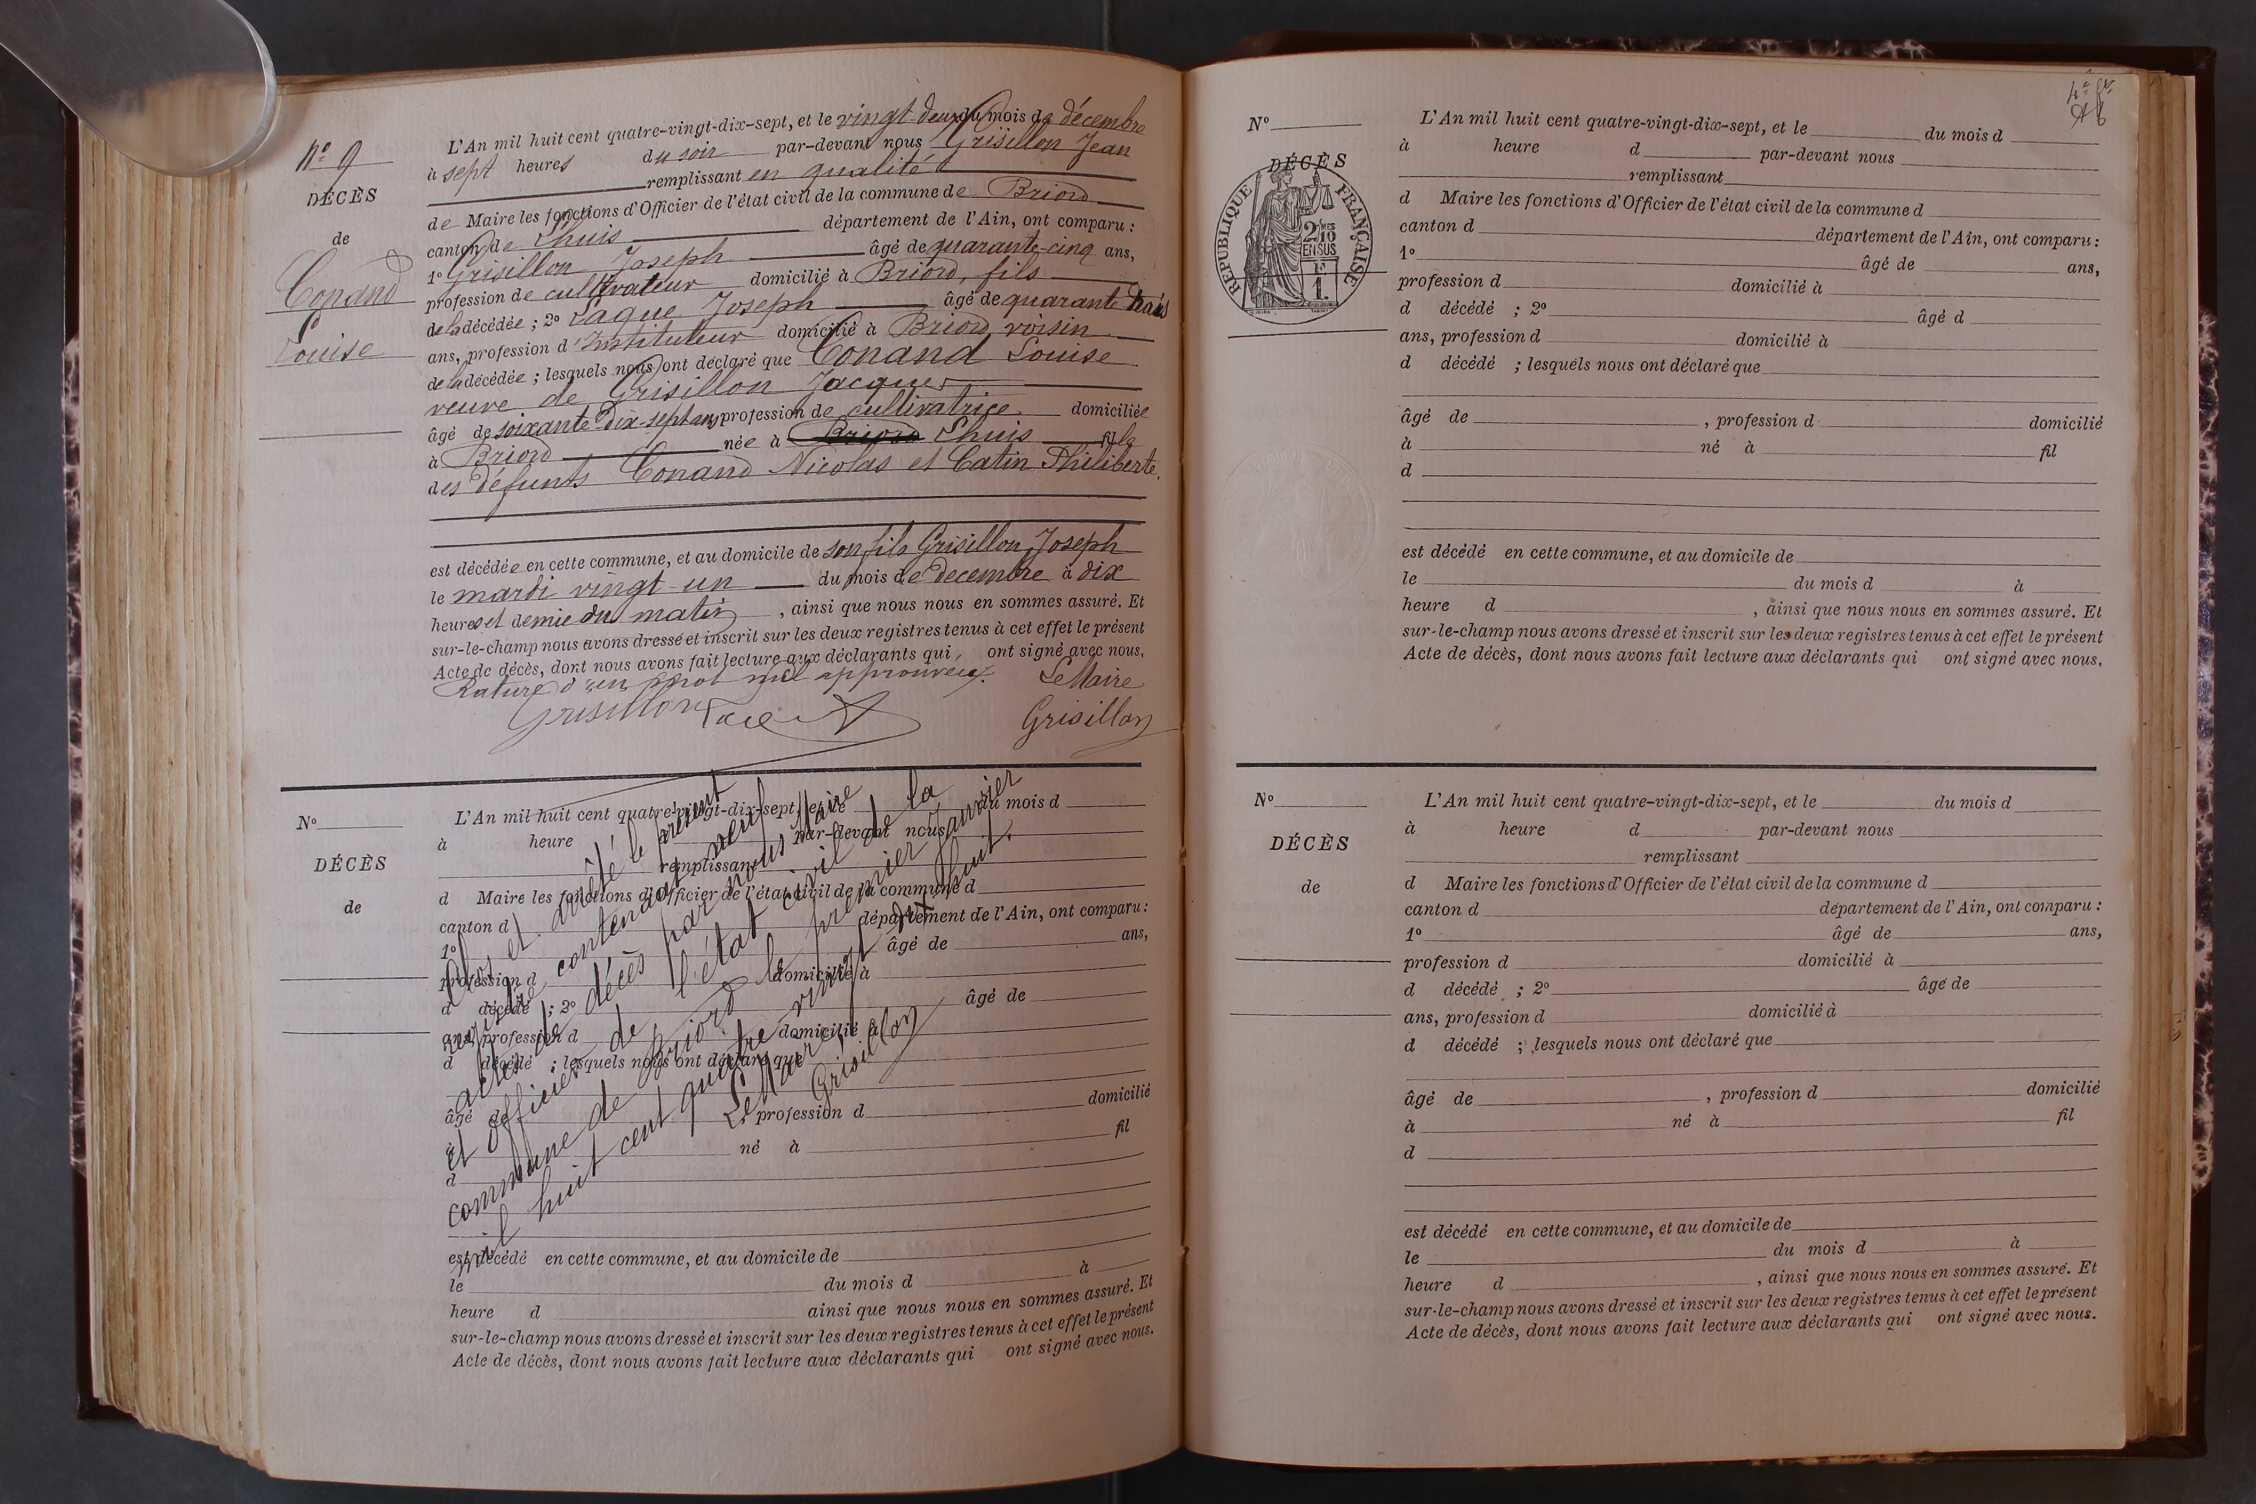 N° 9
DÉCÈS
de
Conand
Louise
L'An mil huit cent quatre-vingt-dix-sept, et le vingt deux du mois de décembre
à sept heures du soir par-devant nous Grisillon Jean
remplissant en qualité
de Maire les fonctions d'Officier de l'état civil de la commune de Briord
canton de Lhuis département de l'Ain, ont comparu :
1° Grisillon Joseph âgé de quarante-cinq ans,
profession de cultivateur domicilié à Briord, fils
de la décédée ; 2° Laque Joseph âgé de quarante trois
ans, profession d'instituteur domicilié à Briord, voisin
de la décédée ; lesquels nous ont déclaré que Conand Louise
veuve de Grisillon Jacques
âgé de soixante-dix-sept ans, profession de cultivatrice domiciliée
à Briord née à Briord Lhuis fille
des défunts Conand Nicolas et Catin Philiberte.
est décédée en cette commune, et au domicile de son fils Grisillon Joseph
le mardi vingt-un du mois de décembre à dix
heures et demie du matin, ainsi que nous nous en sommes assuré. Et
sur-le-champ nous avons dressé et inscrit sur les deux registres tenus à cet effet le présent
Acte de décès, dont nous avons fait lecture aux déclarants qui ont signé avec nous.
Rature d'un mot nul approuvée. Le Maire
Grisillon Grisillon
N°
DÉCÈS
de
L'An mil huit cent quatre-vingt-dix-sept, et le du mois d
à heure par-devant nous
remplissant
d Maire les fonctions d'Officier de l'état civil de la commune d
canton d département de l'Ain, ont comparu :
1° âgé de ans,
profession d domicilié à
d décédé ; 2° âgé de
ans, profession d domicilié à
d décédé ; lesquels nous ont déclaré que
âgé de , profession d domicilié
à né à fil
d
est décédé en cette commune, et au domicile de
le du mois d à
heure d ainsi que nous nous en sommes assuré. Et
sur-le-champ nous avons dressé et inscrit sur les deux registres tenus à cet effet le présent
Acte de décès, dont nous avons fait lecture aux déclarants qui ont signé avec nous.
Clos et arrêté le présent
registre contenant neuf
actes de décès par nous Maire
et officier de l'état civil de la
commune de Briord le premier Janvier
mil huit cent quatre vingt dix huit.
Le Maire
Grisillon
N°
DÉCÈS
RÉPUBLIQUE FRANÇAISE
2/10
EN SUS
1.
L'An mil huit cent quatre-vingt-dix-sept, et le du mois d
à heure d par-devant nous
remplissant
d Maire les fonctions d'Officier de l'état civil de la commune d
canton d département de l'Ain, ont comparu :
1° âgé de ans,
profession d domicilié à
d décédé ; 2° âgé d
ans, profession d domicilié à
d décédé ; lesquels nous ont déclaré que
âgé de , profession d domicilié
à né à fil
d
est décédé en cette commune, et au domicile de
le du mois d à
heure d , ainsi que nous nous en sommes assuré. Et
sur-le-champ nous avons dressé et inscrit sur les deux registres tenus à cet effet le présent
Acte de décès, dont nous avons fait lecture aux déclarants qui ont signé avec nous.
N°
DÉCÈS
de
L'An mil huit cent quatre-vingt-dix-sept, et le du mois d
à heure d par-devant nous
remplissant
d Maire les fonctions d'Officier de l'état civil de la commune d
canton d département de l'Ain, ont comparu :
1° âgé de ans,
profession d domicilié à
d décédé ; 2° âgé de
ans, profession d domicilié à
d décédé ; lesquels nous ont déclaré que
âgé de , profession d domicilié
à né à fil
d
est décédé en cette commune, et au domicile de
le du mois d à
heure d , ainsi que nous nous en sommes assuré. Et
sur-le-champ nous avons dressé et inscrit sur les deux registres tenus à cet effet le présent
Acte de décès, dont nous avons fait lecture aux déclarants qui ont signé avec nous.